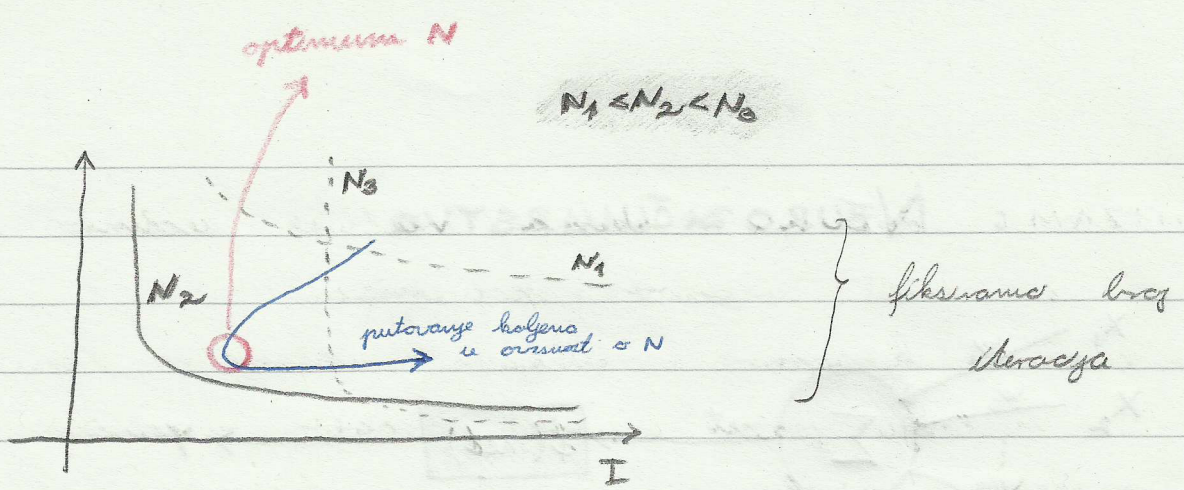 optimum N
N1 < N2 < N3
N3
N1
N2
putovanje koljena
u ovisnosti o N
fiksiramo broj
iteracija
I